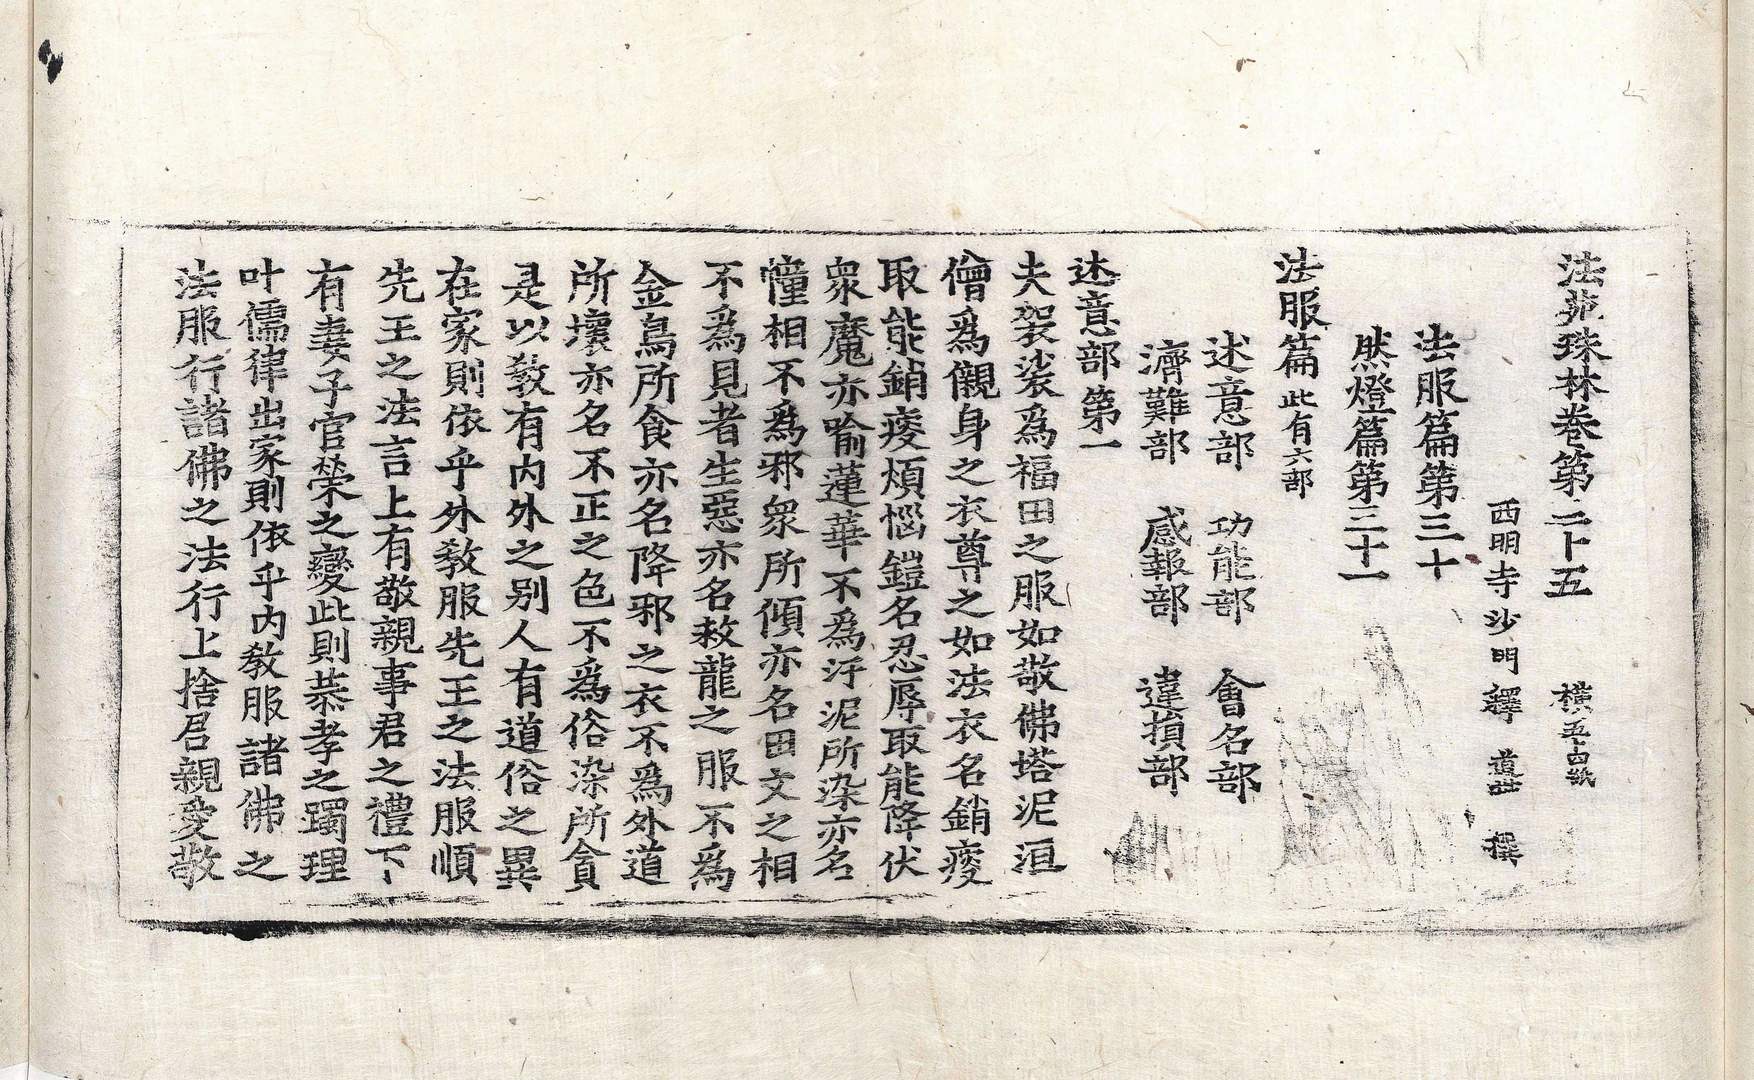 法苑珠林卷第二十五 橫
西明寺沙門釋 道世 撰
法服篇第三十
然燈篇第三十一
法服篇此有六部
述意部 功能部 會名部
濟難部 感報部 違損部
述意部第一
夫袈裟爲福田之服如敬佛塔泥洹
僧爲儭身之衣尊之如法衣名銷瘦
取能銷瘦煩惱鎧名忍辱取能降伏
衆魔亦喻蓮華不爲汙泥所染亦名
幢相不爲邪衆所傾亦名田文之相
不爲見者生惡亦名救龍之服不爲
金鳥所食亦名降邪之衣不爲外道
所壞亦名不正之色不爲俗染所貪
是以敎有内外之别人有道俗之異
在家則依乎外敎服先王之法服順
先王之法言上有敬親事君之禮下
有妻子官榮之變此則恭孝之躅理
叶儒律出家則依乎内敎服諸佛之
法服行諸佛之法行上捨君親愛敬